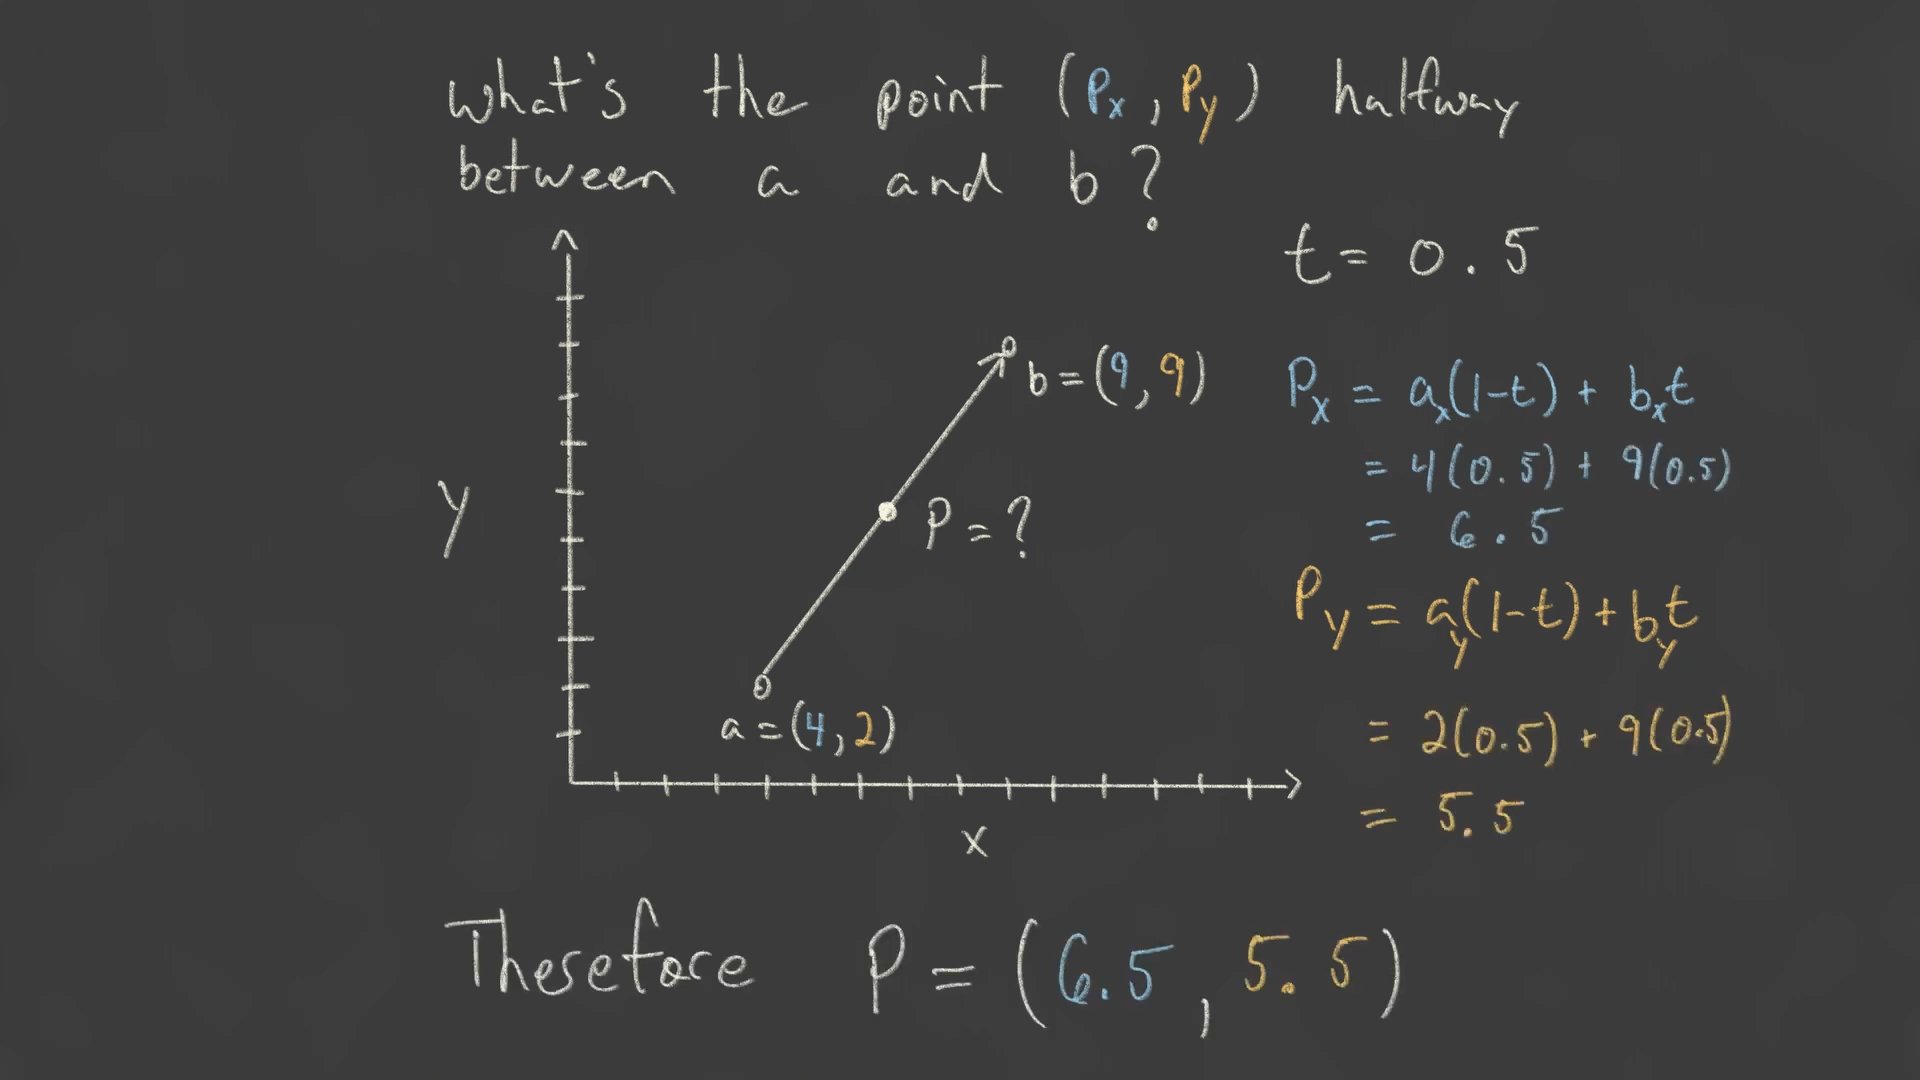 what's the point (Px, Py) halfway
between a and b?
t = 0.5
b = (9, 9)
Px = ax(1-t) + bxt
= 4(0.5) + 9(0.5)
= 6.5
y
P = ?
Py = ay(1-t) + byt
= 2(0.5) + 9(0.5)
= 5.5
a = (4, 2)
x
Therefore P = (6.5, 5.5)